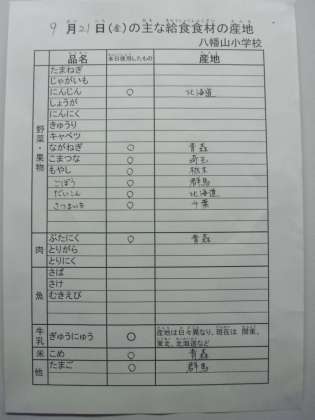 9月21日(金)の主な給食食材の産地
八幡山小学校
品名 本日使用したもの 産地
野菜・果物
たまねぎ
じゃがいも
にんじん ○ 北海道
しょうが
にんにく
きゅうり
キャベツ
ながねぎ ○ 青森
こまつな ○ 埼玉
もやし ○ 栃木
ごぼう ○ 群馬
だいこん ○ 北海道
さつまいも ○ 千葉
肉
ぶたにく ○ 青森
とりがら
とりにく
魚
さば
さけ
むきえび
牛乳
ぎゅうにゅう ○ 産地は日々異なり、現在は 関東、
東北、北海道など
米 こめ ○ 青森
他 たまご ○ 群馬